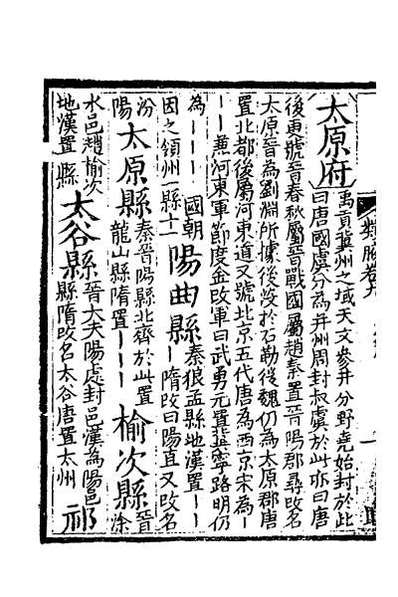 太原府
禹貢冀州之域天文參井分野堯始封於此
曰唐國虞分為并州周封叔虞於此亦曰唐
後更號晉春秋屬晉戰國屬趙秦置晉陽郡尋改名
太原晉為劉淵所據後沒於石勒後魏仍為太原郡唐
置北都後屬河東道又號北京五代唐為西京宋為｜
｜｜兼河東軍節度金改軍曰武勇元置冀寧路明仍
為｜｜ 國朝
因之領州一縣十一
陽曲縣
秦狼孟縣地漢置｜｜
｜隋改曰陽直又改名
汾
陽
太原縣
秦晉陽縣北齊於此置
龍山縣隋置｜｜｜
榆次縣
晉
涂
水邑趙榆次
地漢置｜縣
太谷縣
晉大夫陽處封邑漢為陽邑
縣隋改名太谷唐置太州
祁